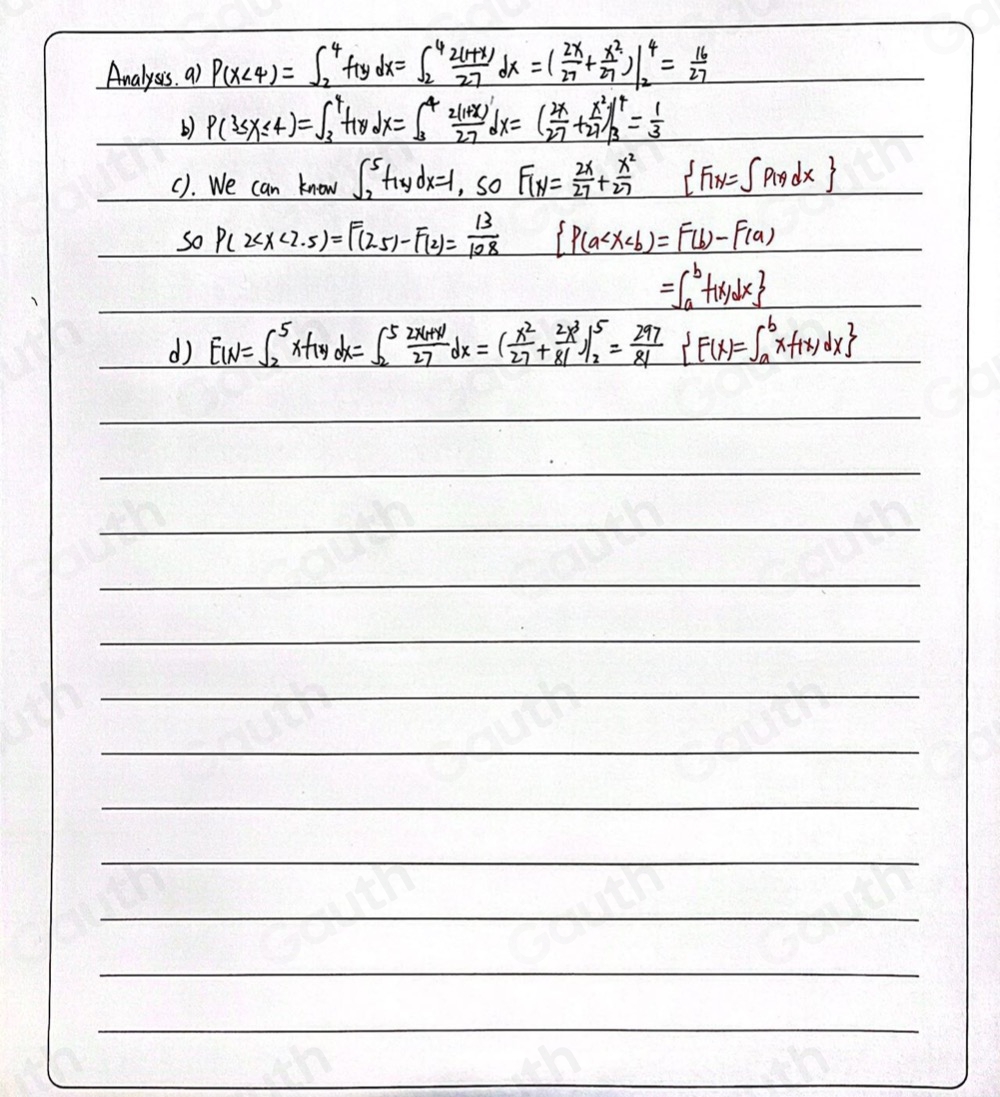 Analysis. a) P(X<4) = ∫₂⁴ f(x) dx = ∫₂⁴ 2(1+x)/27 dx = (2x/27 + x²/27)|₂⁴ = 16/27
b) P(3≤X≤4) = ∫₃⁴ f(x) dx = ∫₃⁴ 2(1+x)/27 dx = (2x/27 + x²/27)|₃⁴ = 1/3
c). We can know ∫₂⁵ f(x) dx = 1, so F(x) = 2x/27 + x²/27 {F(x) = ∫ P(x) dx}
so P(2<X<2.5) = F(2.5) - F(2) = 13/108 {P(a<X<b) = F(b) - F(a)
= ∫ₐᵇ f(x) dx}
d) E(x) = ∫₂⁵ x f(x) dx = ∫₂⁵ 2x(1+x)/27 dx = (x²/27 + 2x³/81)|₂⁵ = 297/81 {E(X) = ∫ₐᵇ x f(x) dx}